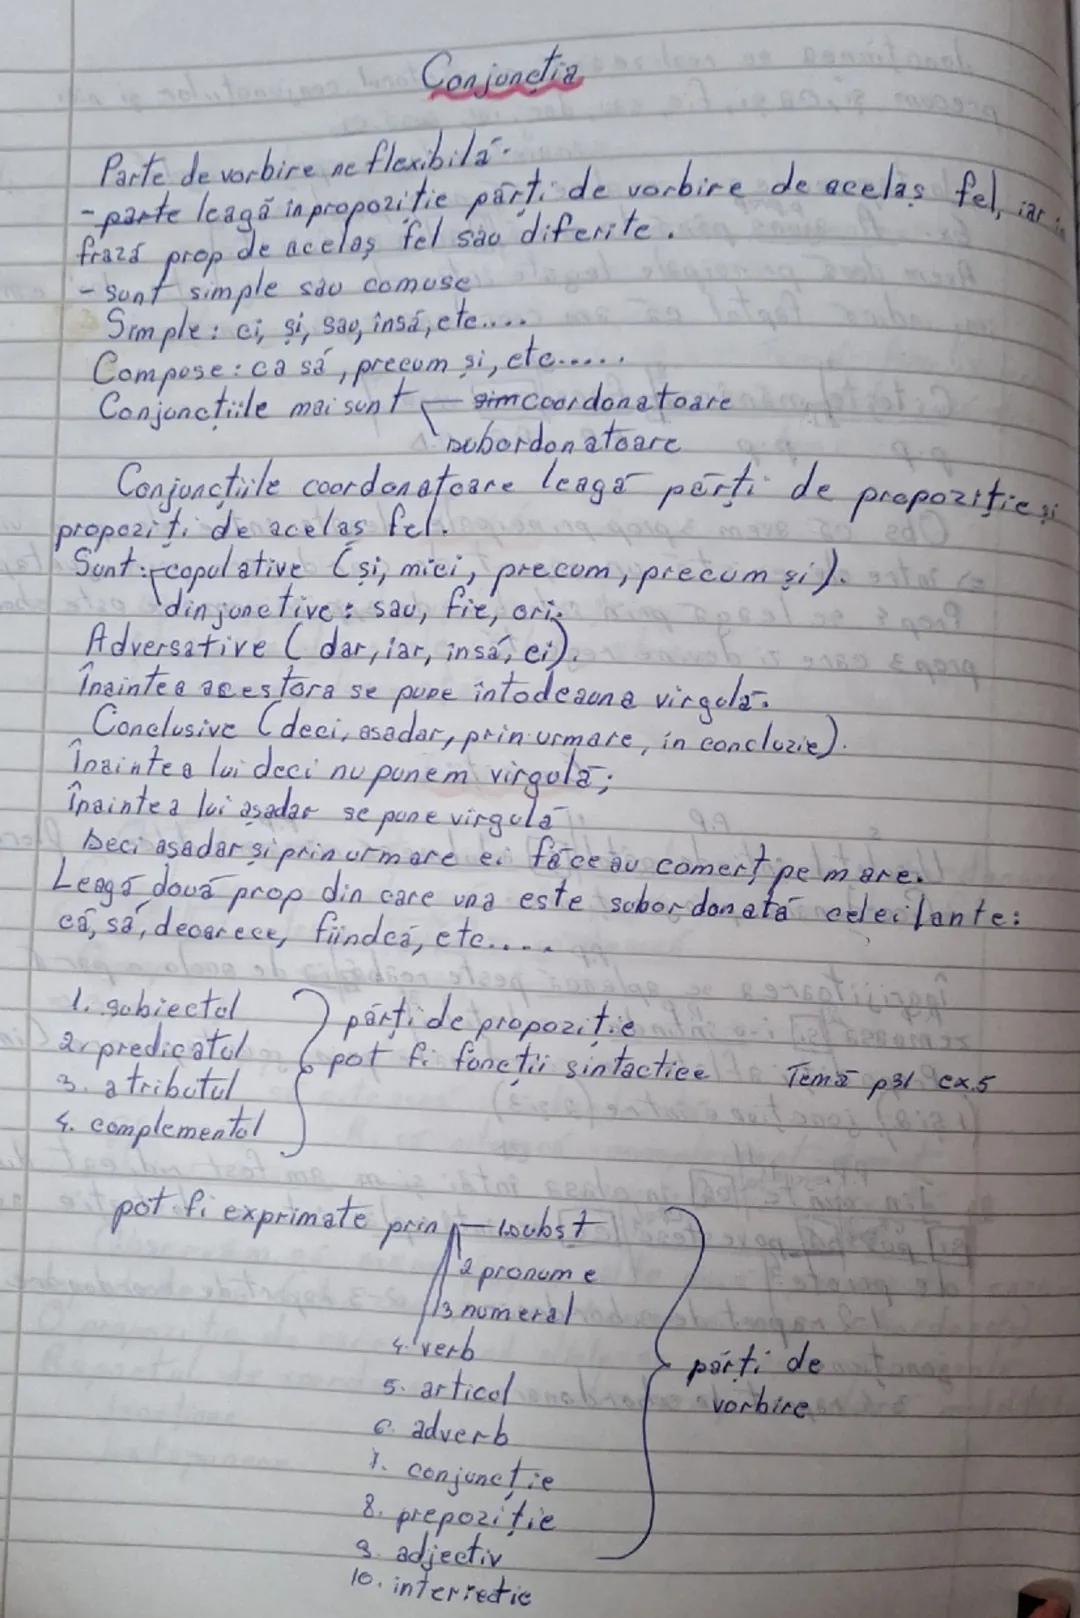 Conjuncția
Parte de vorbire neflexibilă.
- parte leagă in propoziție părți de vorbire de acelaș fel, iar în
frază prop de acelaș fel sau diferite.
- sunt simple sau comuse
Simple: ci, și, sau, însă, etc....
Compuse: ca să, precum și, etc.....
Conjuncțiile mai sunt sim coordonatoare
subordonatoare
Conjuncțiile coordonatoare leagă părți de propoziție și
propoziți de acelaș fel.
Sunt: copulative (și, nici, precum, precum și).
dinjunctive: sau, fie, ori.
Adversative (dar, iar, însă, ci).
Înaintea acestora se pune întodeauna virgulă.
Conclusive (deci, asadar, prin urmare, în concluzie).
Înaintea lui deci nu punem virgulă;
Înaintea lui așadar se pune virgulă
Deci așadar și prin urmare ei făceau comerț pe mare.
Leagă două prop din care una este subordonată celeilante:
că, să, deoarece, fiindcă, etc....
1. subiectul
2. predicatul
3. atributul
4. complementul
părți de propoziție
pot fi foncții sintactice
Temă p31 ex.5
pot fi exprimate prin 1. subst
2 pronume
3 numeral
4. verb
5. articol
6. adverb
7. conjuncție
8. prepoziție
9. adjectiv
10. interiectie
părți de
vorbire